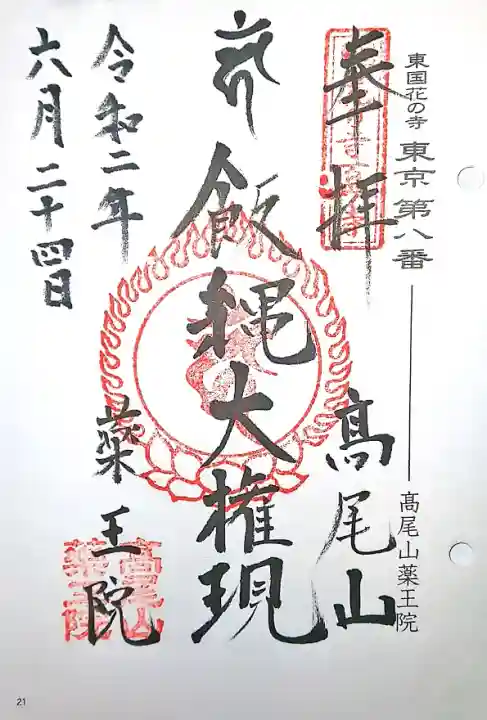 東国花の寺 東京第八番 髙尾山薬王院
奉拝 髙尾山
飯縄大権現
薬王院
令和二年
六月二十四日
髙尾山
薬王院
21